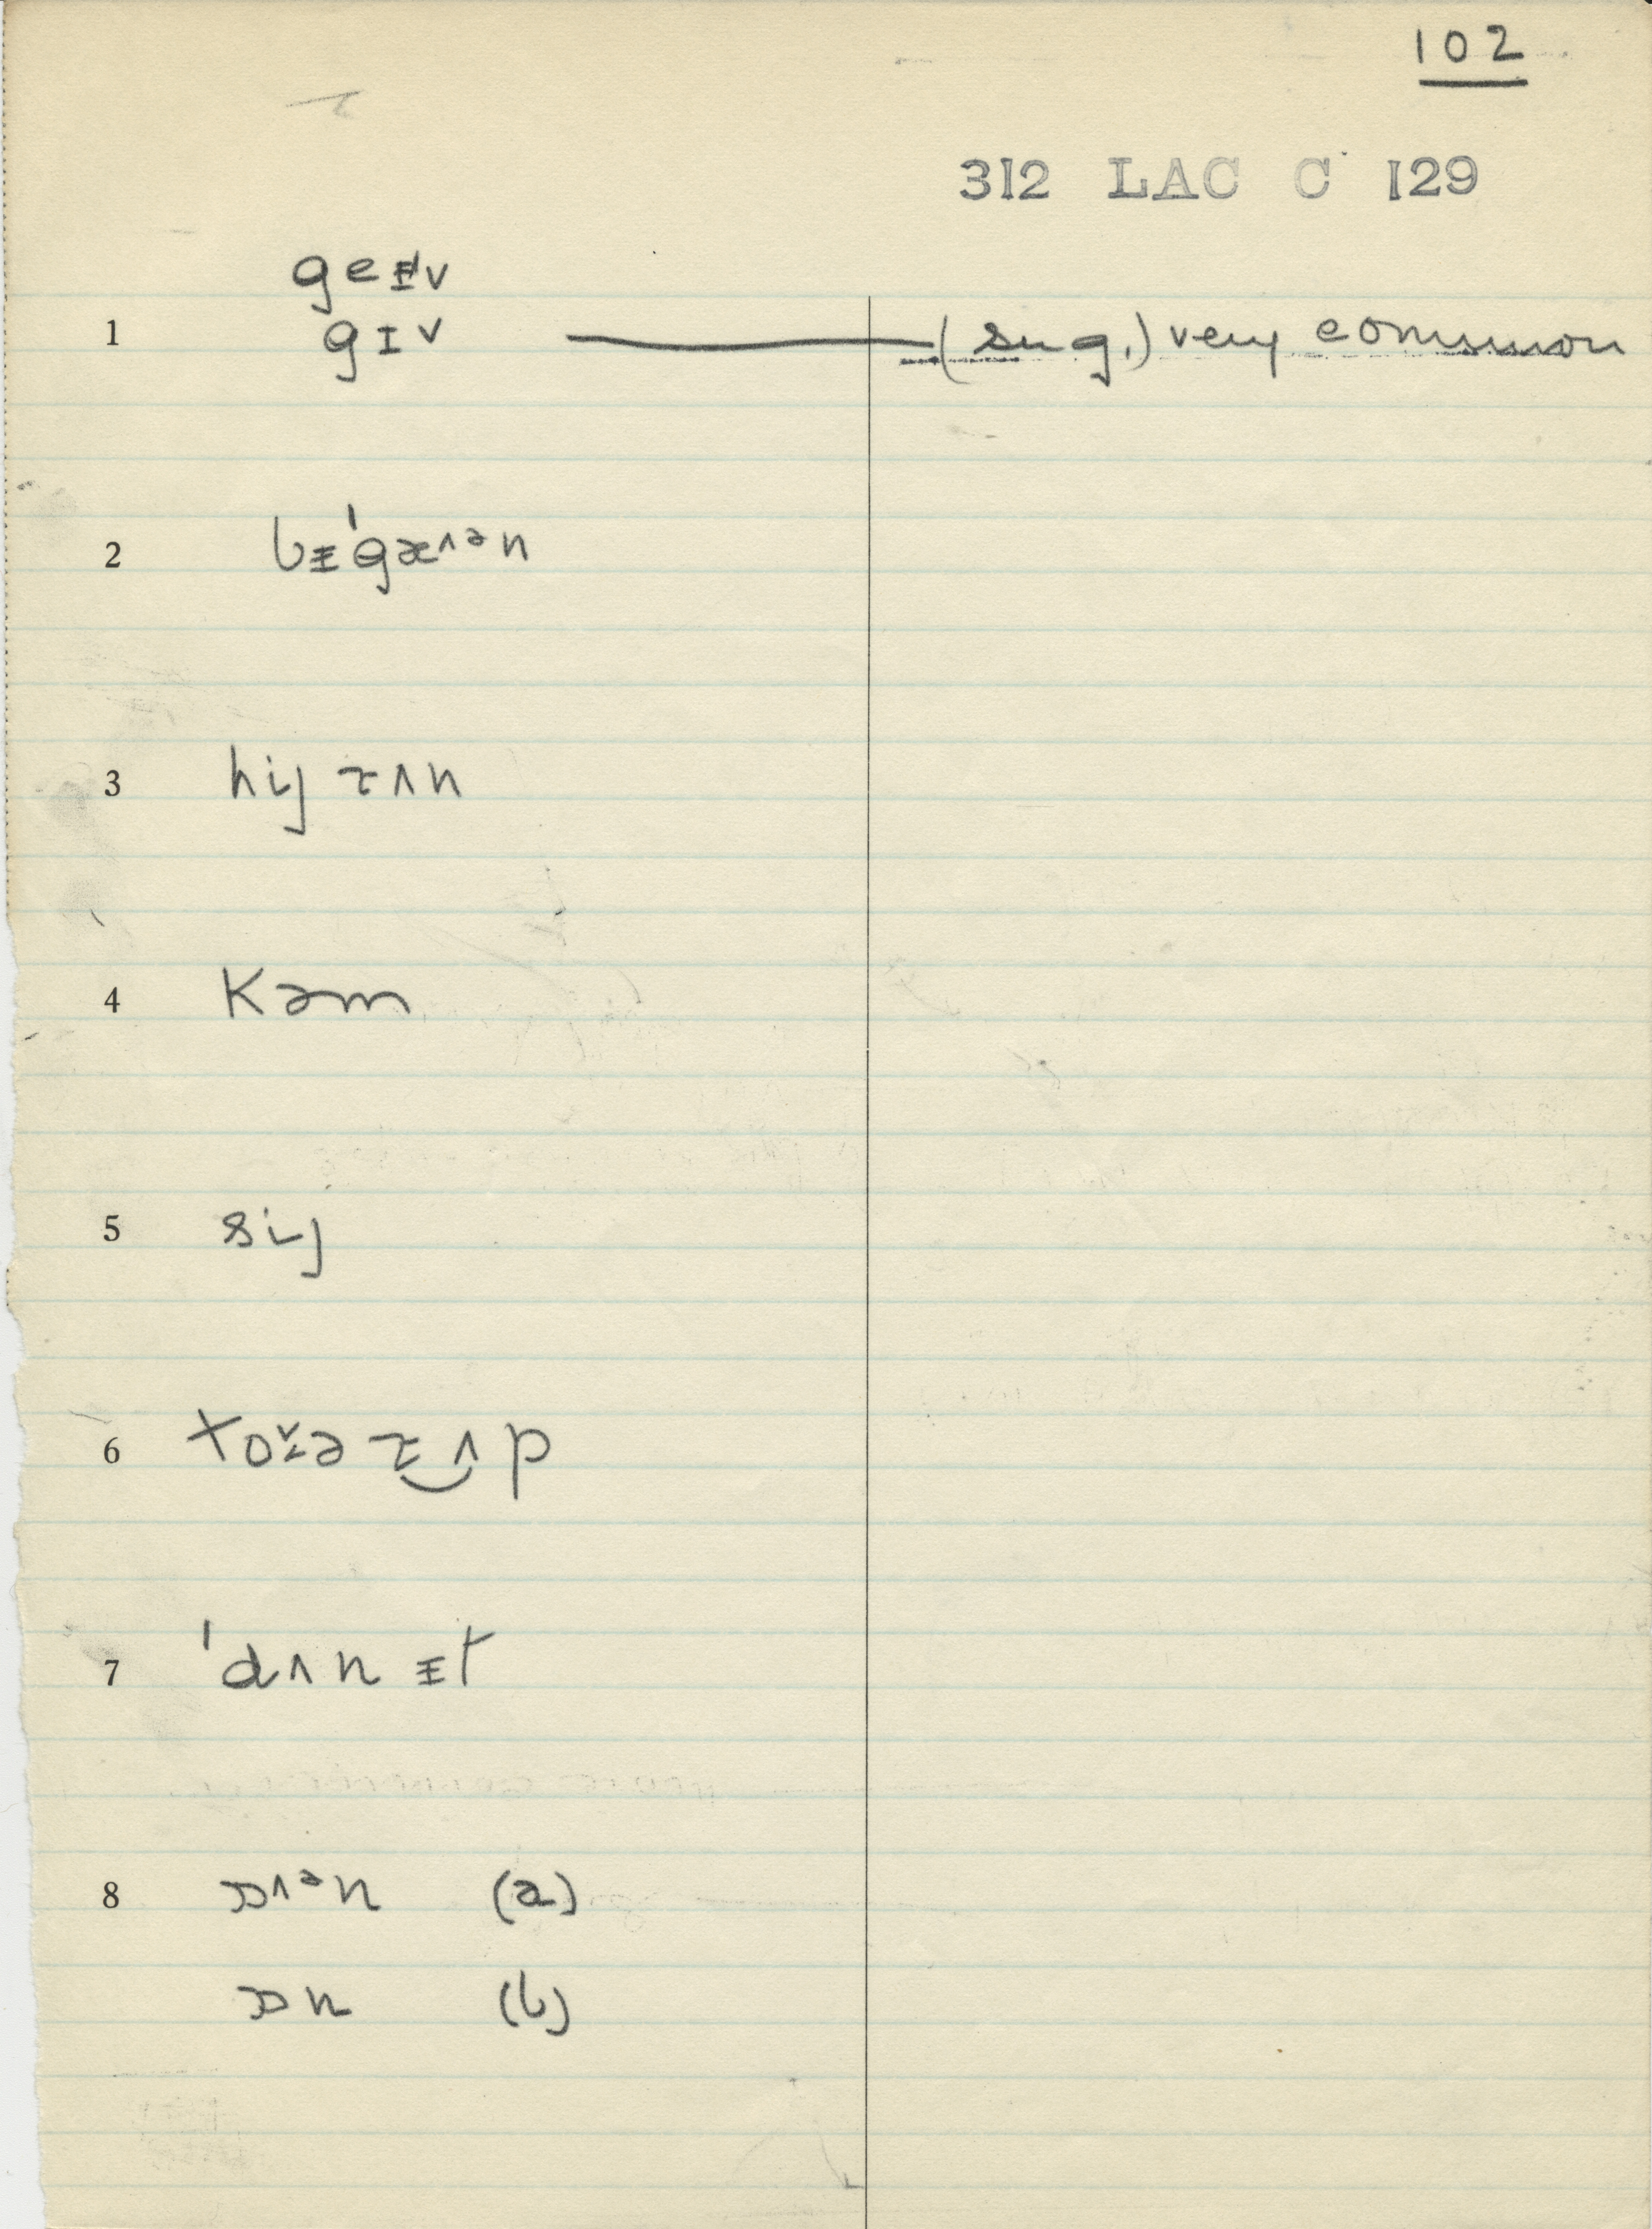 102
312 LAC C 129
geᵻv
1 gɪv —— (sug.) very common
2 bᵻˈgæ^ᵊn
3 hij rʌn
4 kəm
5 sij
6 tərʌp
7 ˈdʌnᵻt
8 ɒ^ᵊn (a)
ɒn (b)